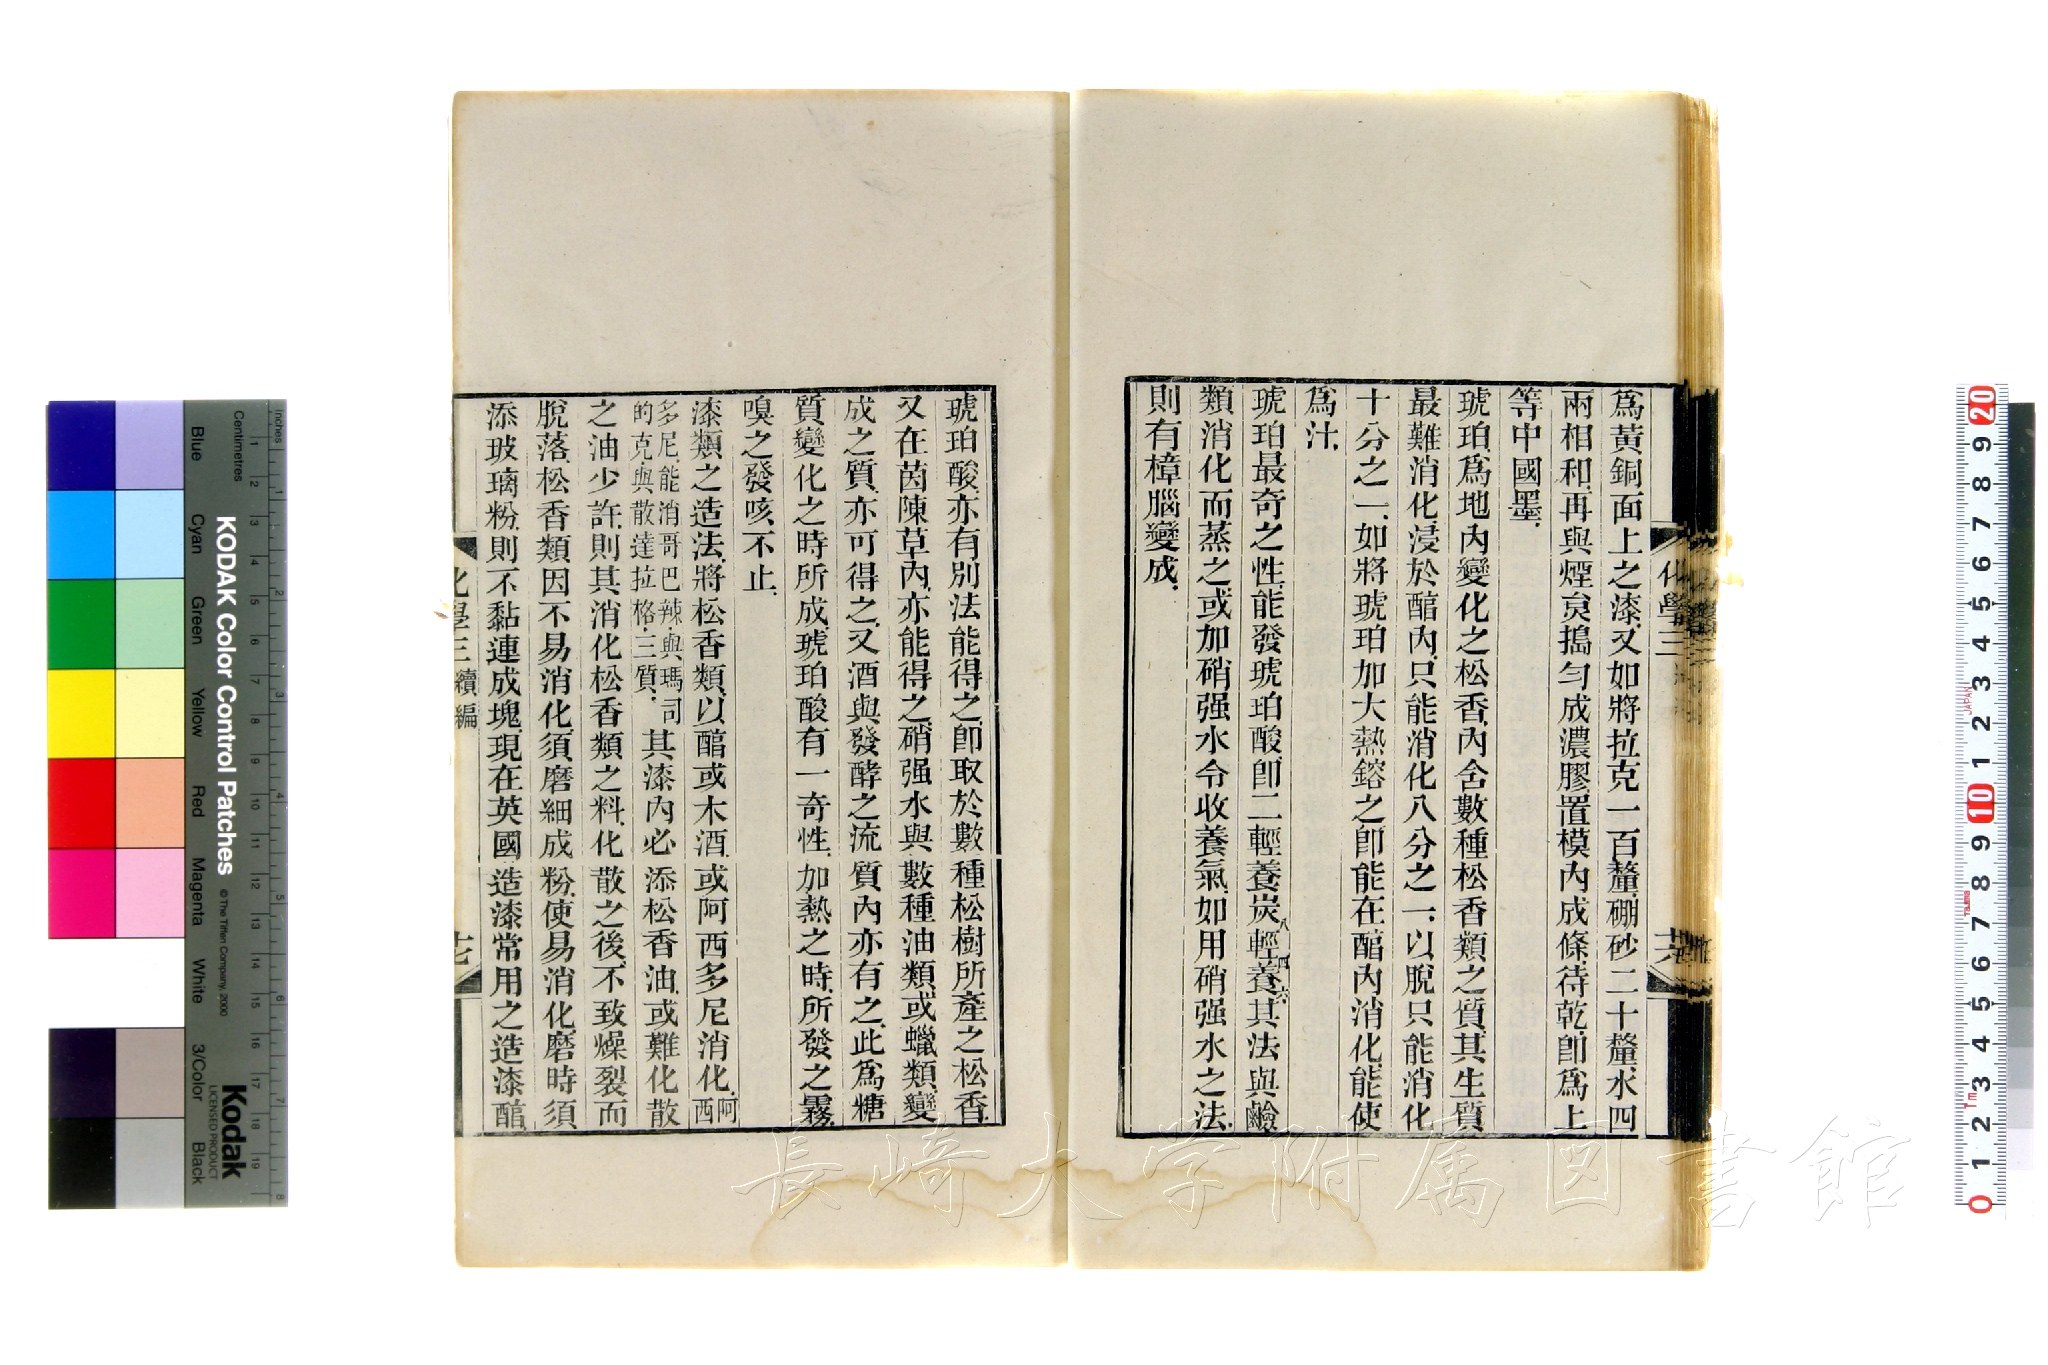 爲黃銅面上之漆又如將拉克一百釐硼砂二十釐水四
兩相和再與煙炱搗勻成濃膠置模內成條待乾卽爲上
等中國墨
琥珀爲地內變化之松香內含數種松香類之質其生質
最難消化浸於醕內只能消化八分之一以脫只能消化
十分之一如將琥珀加大熱鎔之卽能在醕內消化能使
爲汁
琥珀最奇之性能發琥珀酸卽二輕養炭八輕四養六其法與鹼
類消化而蒸之或加硝强水令收養氣如用硝强水之法
則有樟腦變成
化學三
琥珀酸亦有別法能得之卽取於數種松樹所產之松香
又在茵陳草內亦能得之硝强水與數種油類或蠟類變
成之質亦可得之又酒與發酵之流質內亦有之此爲糖
質變化之時所成琥珀酸有一奇性加熱之時所發之霧
嗅之發咳不止
漆類之造法將松香類以醕或木酒或阿西多尼消化阿西
多尼能消哥巴辣與瑪司
的克與散達拉格三質其漆內必添松香油或難化散
之油少許則其消化松香類之料化散之後不致燥裂而
脫落松香類因不易消化須磨細成粉使易消化磨時須
添玻璃粉則不黏連成塊現在英國造漆常用之造漆醕
化學三 續編
長崎大学附属図書館
KODAK Color Control Patches
© The Tiffen Company, 2000
Kodak
LICENSED PRODUCT
Inches
Centimetres
Blue
Cyan
Green
Yellow
Red
Magenta
White
3/Color
Black
JAPAN